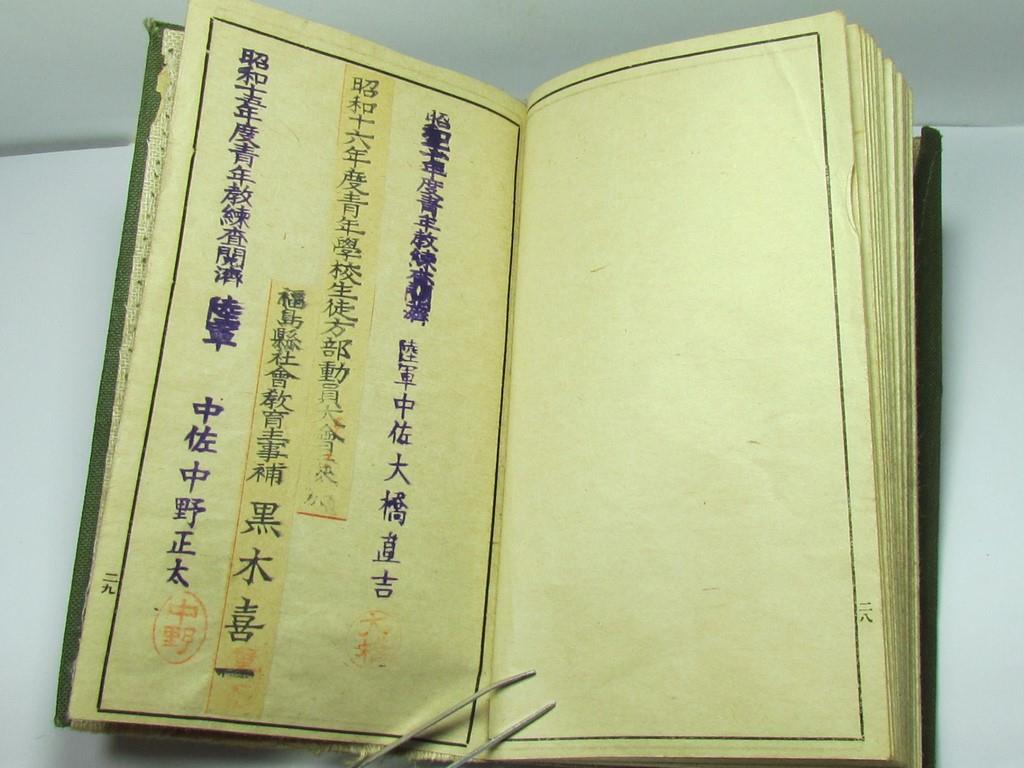 二八
陸軍中佐大橋直吉
大橋
昭和十六年度青年學校生徒方部動員大會
福島縣社會教育主事補 黒木喜一
昭和十五年度青年教練査閲濟 陸軍
中佐中野正太
中野
二九